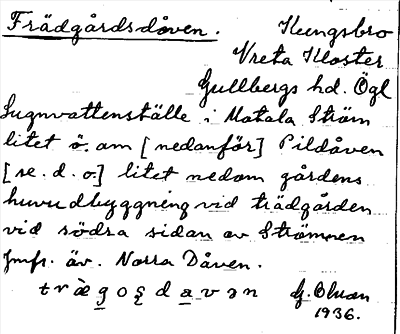 Trädgårdsdåven. Kungsbro
Vreta Kloster
Gullbergs hd. Ögl
Lugnvattenställe i Motala Ström
litet ö. om [nedanför] Pildåven
[se. d. o.] litet nedom gårdens
huvudbyggning vid trädgården
vid södra sidan av Strömmen
Jmfr. äv. Norra Dåven.
G. Olson
1936.